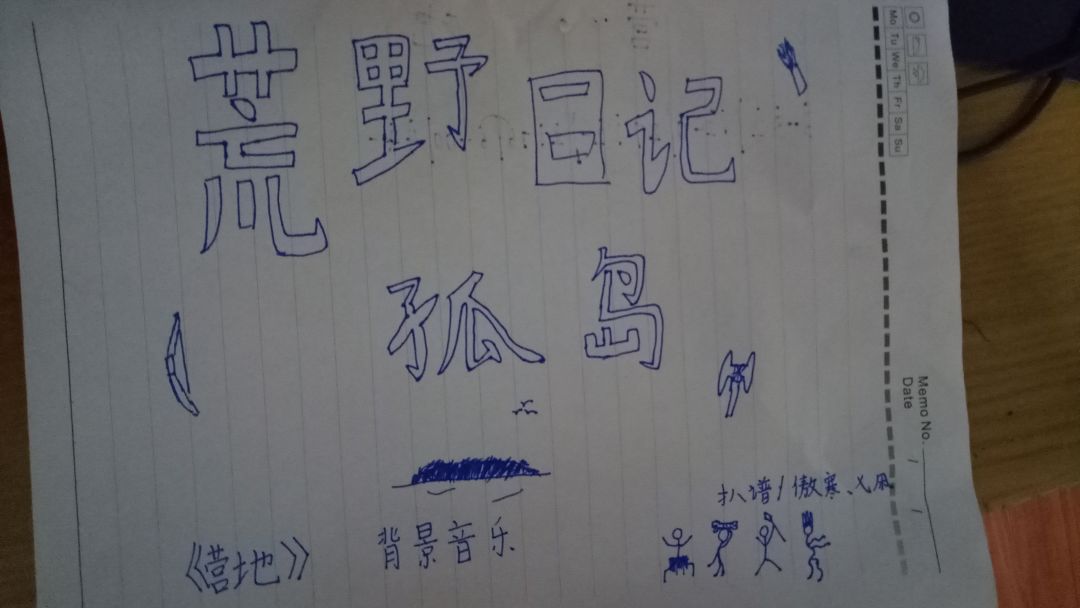 荒野日记
孤岛
扒谱/傲寒、乂风
背景音乐
《营地》
Mo Tu We Th Fr Sa Su
Memo No.
Date / /